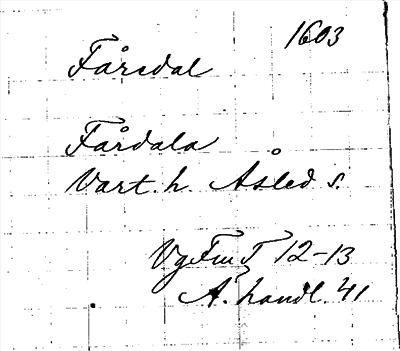 1603
Fårdal
Fårdala
Vart. h. Åsled s.
VgFmT 12-13
Ä. handl. 41